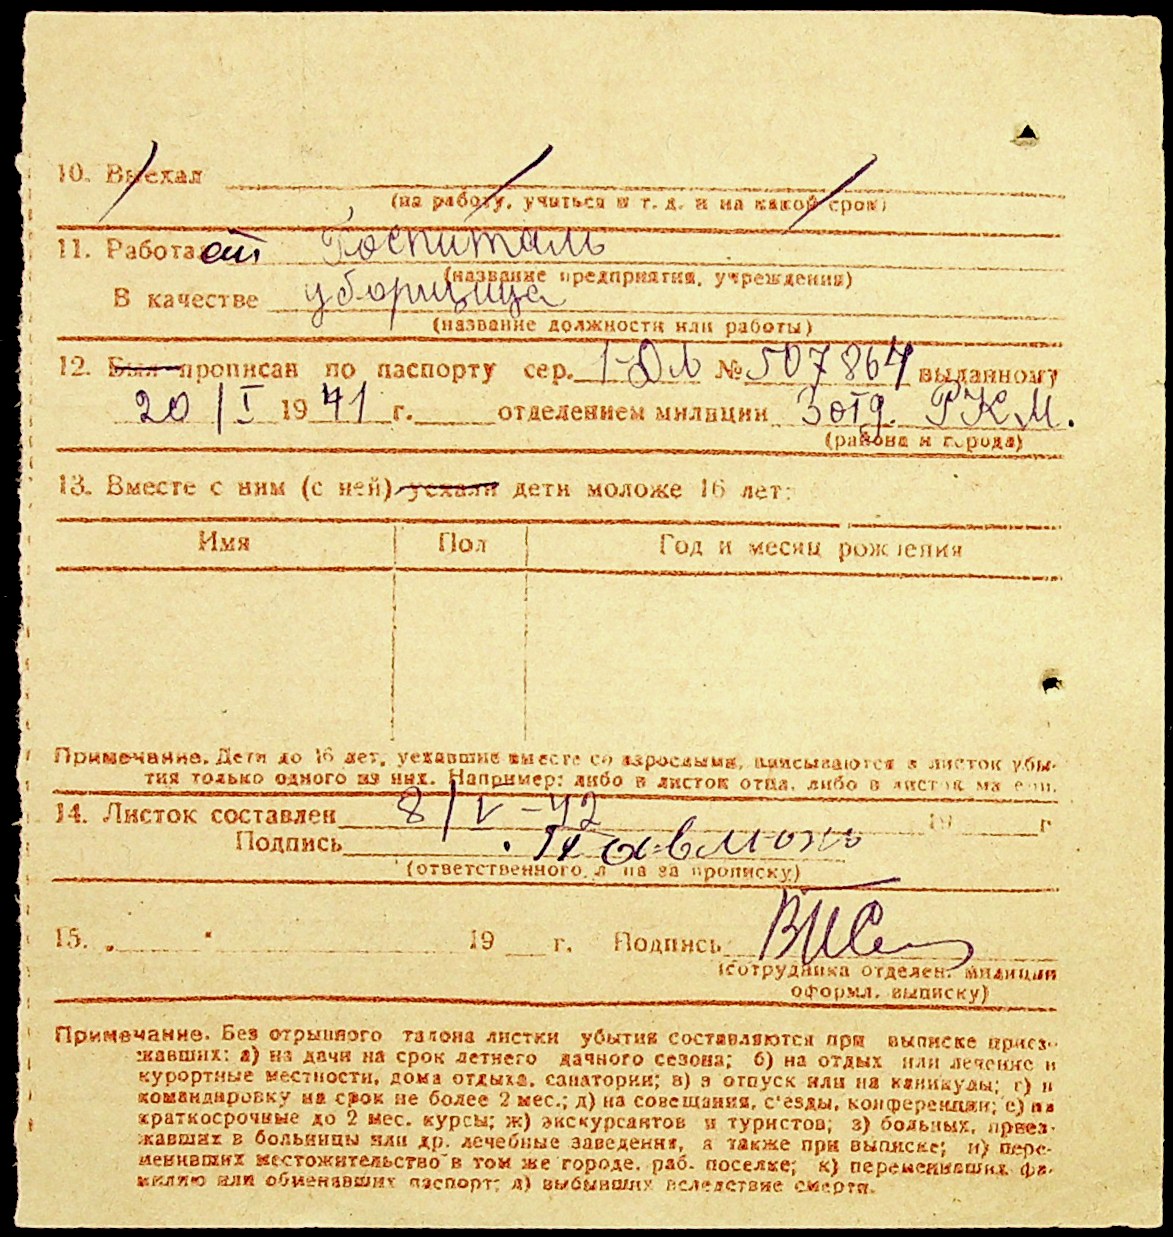 10. Выехал
(на работу, учиться и т. д. и на какой срок)
11. Работает Госпиталь
(название предприятия, учреждения)
В качестве уборщица
(название должности или работы)
12. Был прописан по паспорту сер. 1-ДЛ № 507867 выданному
20/I 1941 г. отделением милиции 3 отд. РКМ.
(района и города)
13. Вместе с ним (с ней) уехали дети моложе 16 лет:
Имя Пол Год и месяц рождения
Примечание. Дети до 16 лет, уехавшие вместе со взрослыми, вписываются в листок убы-
тия только одного из них. Например: либо в листок отца, либо в листок матери.
14. Листок составлен 8/V-42 19 г
Подпись
(ответственного лица за прописку)
15. „ " 19 г. Подпись
(сотрудника отделен. милиции
оформл. выписку)
Примечание. Без отрывного талона листки убытия составляются при выписке приез-
жавших: а) на дачи на срок летнего дачного сезона; б) на отдых или лечение в
курортные местности, дома отдыха, санатории; в) в отпуск или на каникулы; г) в
командировку на срок не более 2 мес.; д) на совещания, с'езды, конференции; е) на
краткосрочные до 2 мес. курсы; ж) экскурсантов и туристов; з) больных, приез-
жавших в больницы или др. лечебные заведения, а также при выписке; и) пере-
менивших местожительство в том же городе, раб. поселке; к) переменивших фа-
милию или обменявших паспорт; л) выбывших вследствие смерти.